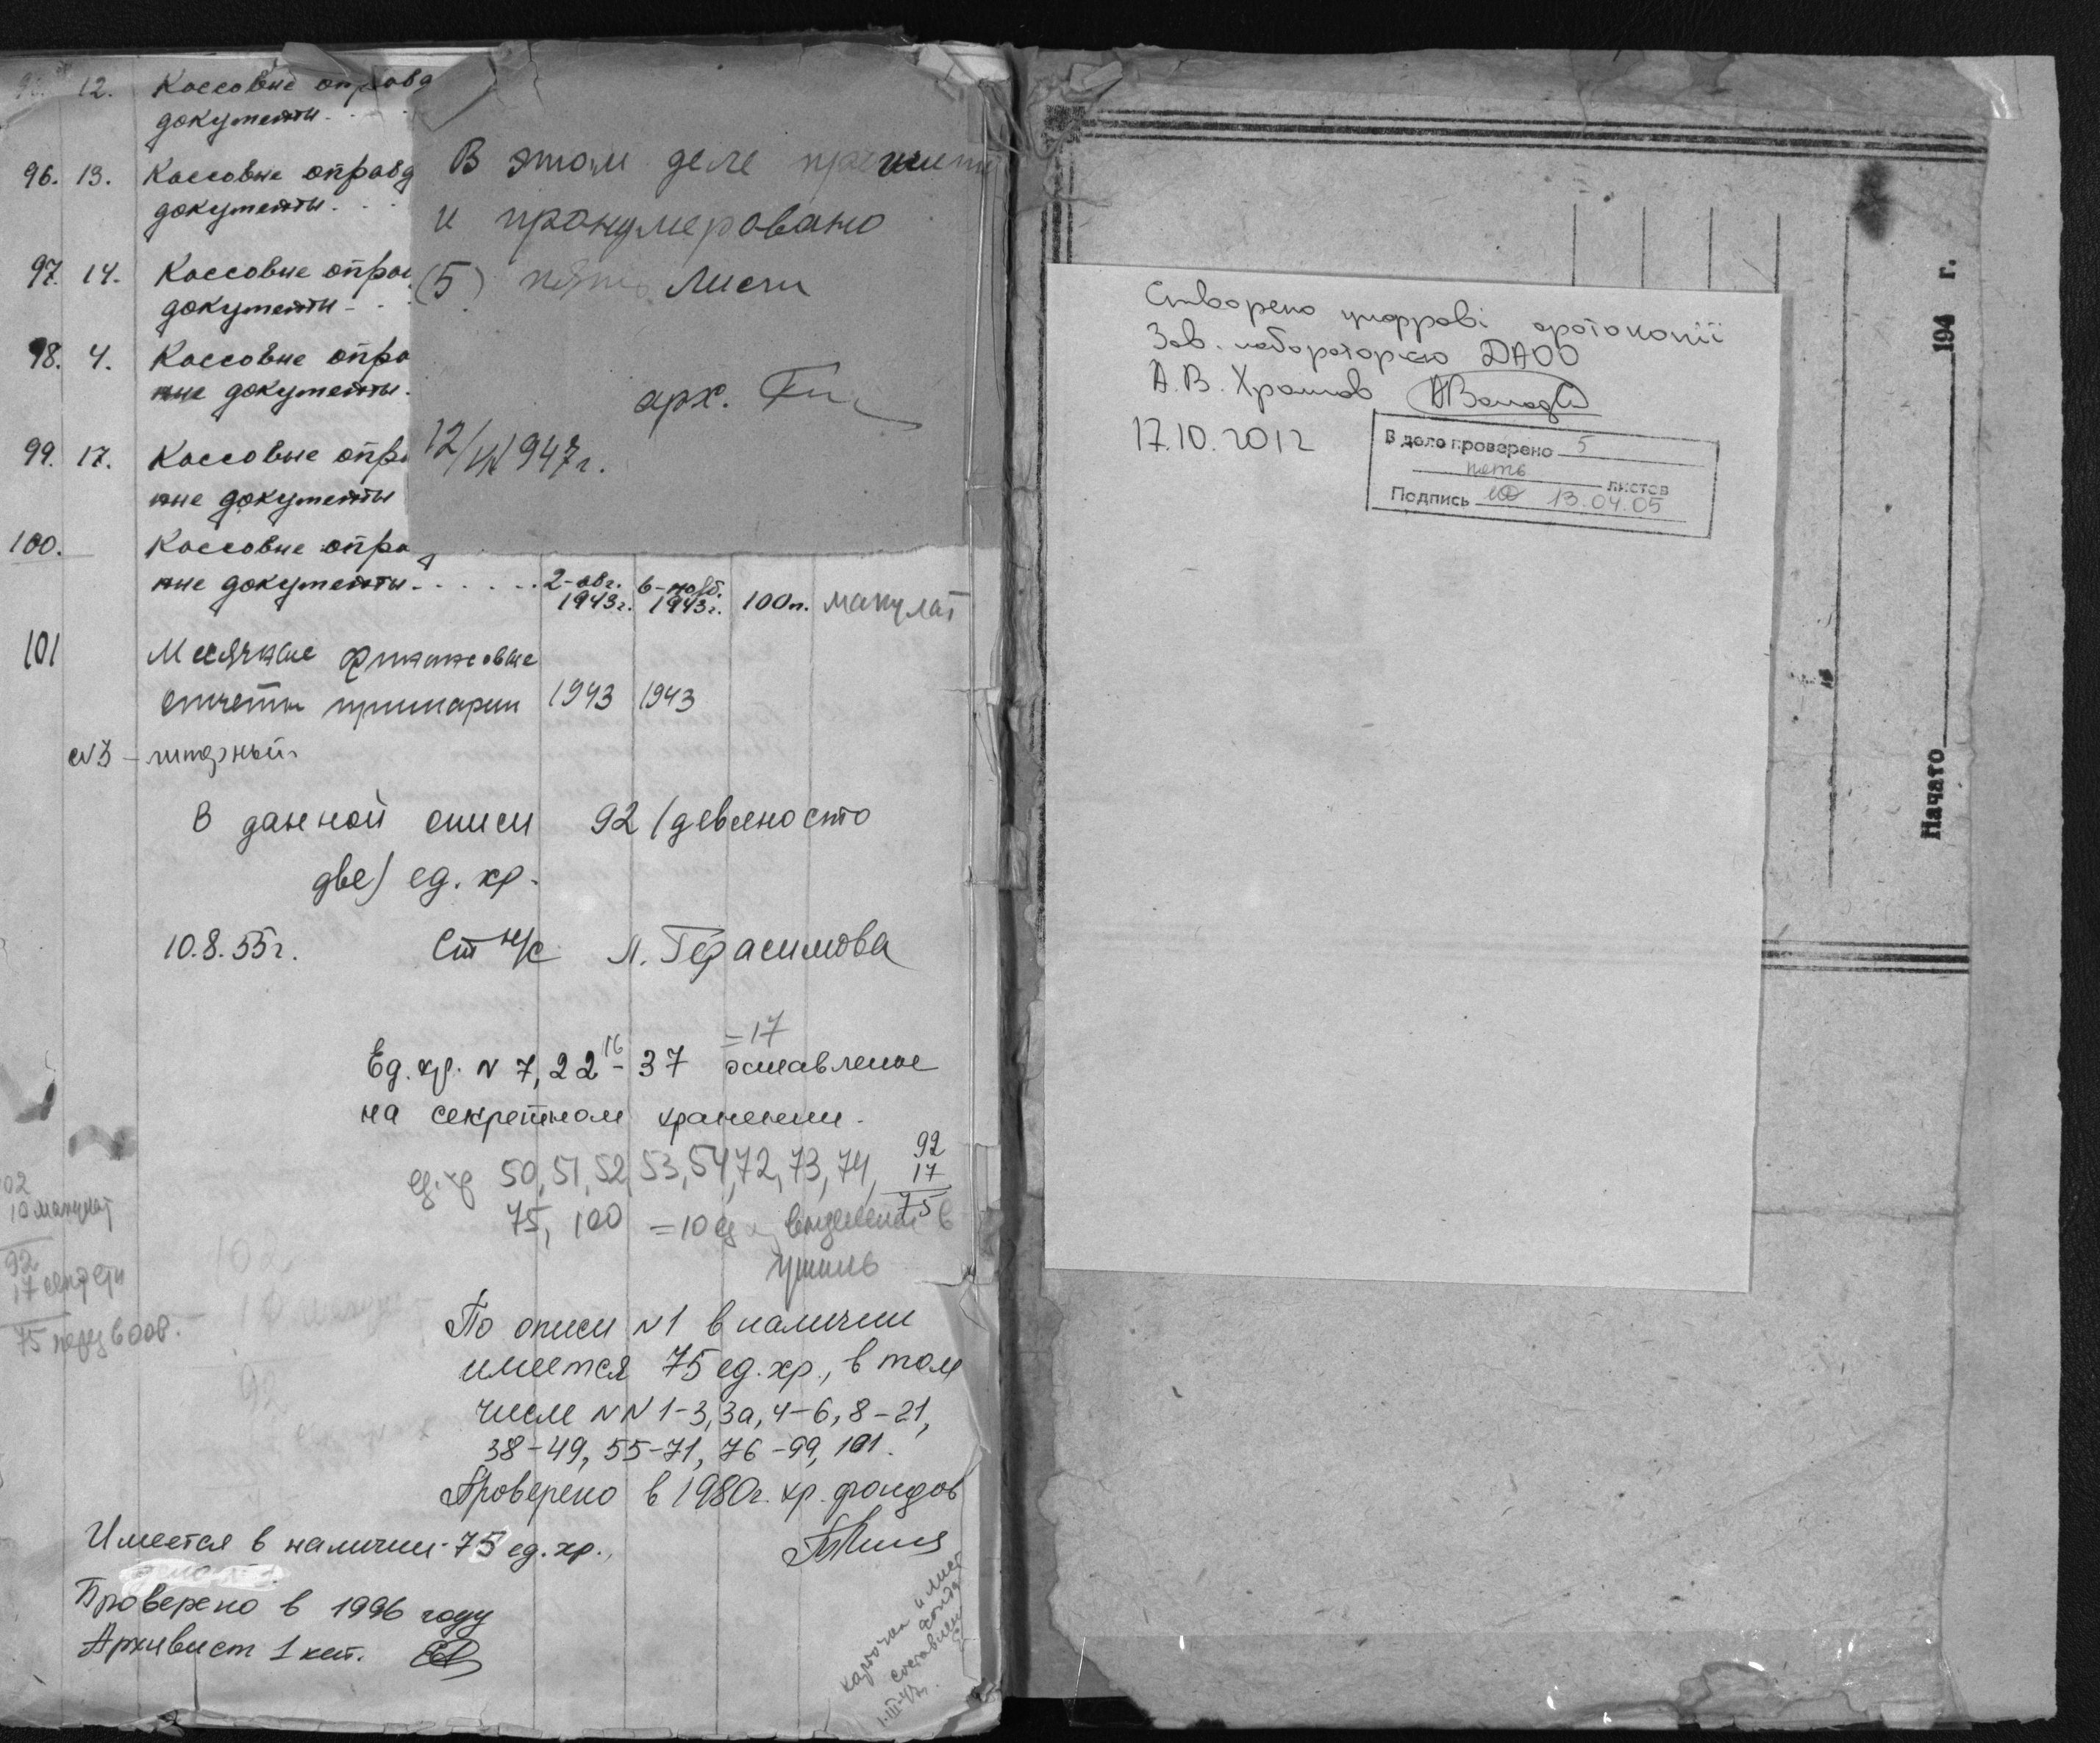 12. Кассовые оправд
документы. . .
96. 13. Кассовые оправд
документы. . .
97. 14. Кассовые оправ
документы - .
98. 4. Кассовые опра
ные документы.
99. 17. Кассовые опра
ные документы
100. Кассовые оправд
ные документы. . . . . . 2-авг. 1943г. 6-нояб. 1943г. 100л. макулат
101 Месячные финансовые
отчеты примарии 1943 1943
№3 - литерный
В данной описи 92 (девяносто
две) ед. хр.
10.8.55г. Ст н/с Л. Герасимова
=17
16
Ед. хр. N 7, 22 - 37 оставленые
на секретном хранении.
ед. хр 50, 51, 52, 53, 54, 72, 73, 74,
75, 100 = 10 ед выделены в
утиль
92
17
75
02
10 макулат
92
17 секретн
75
102
10
92
По описи N1 в наличии
имеется 75 ед. хр., в том
числе NN 1-3, 3а, 4-6, 8-21,
38-49, 55-71, 76-99, 101.
Проверено в 1980г. хр. фондов
Имеется в наличии - 75 ед. хр.,
Проверено в 1996 году
Архивист 1 кат.
карточка и лист
фонда
составлен
В этом деле прошито
и пронумеровано
(5) пять листи
арх.
12/ 1947г.
Створено цифрові фотокопії
Зав. лабораторією ДАОО
А.В. Храмов
17.10.2012
В деле проверено 5
пять листов
Подпись 13.04.05
Начато 194 г.